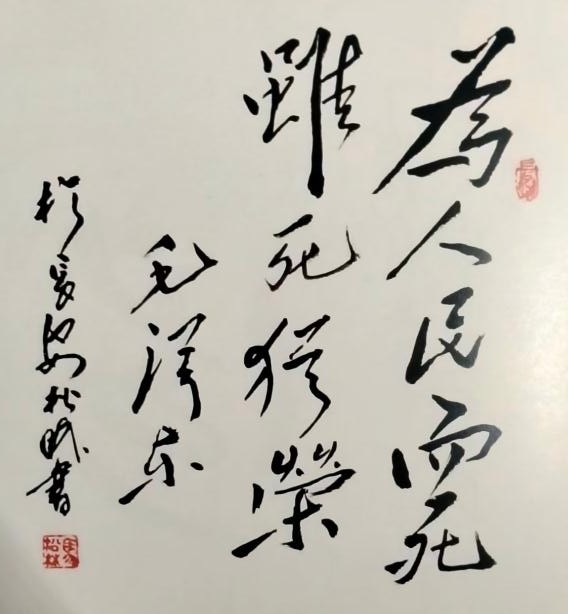 為人民而死
雖死猶榮
毛澤東
松
書